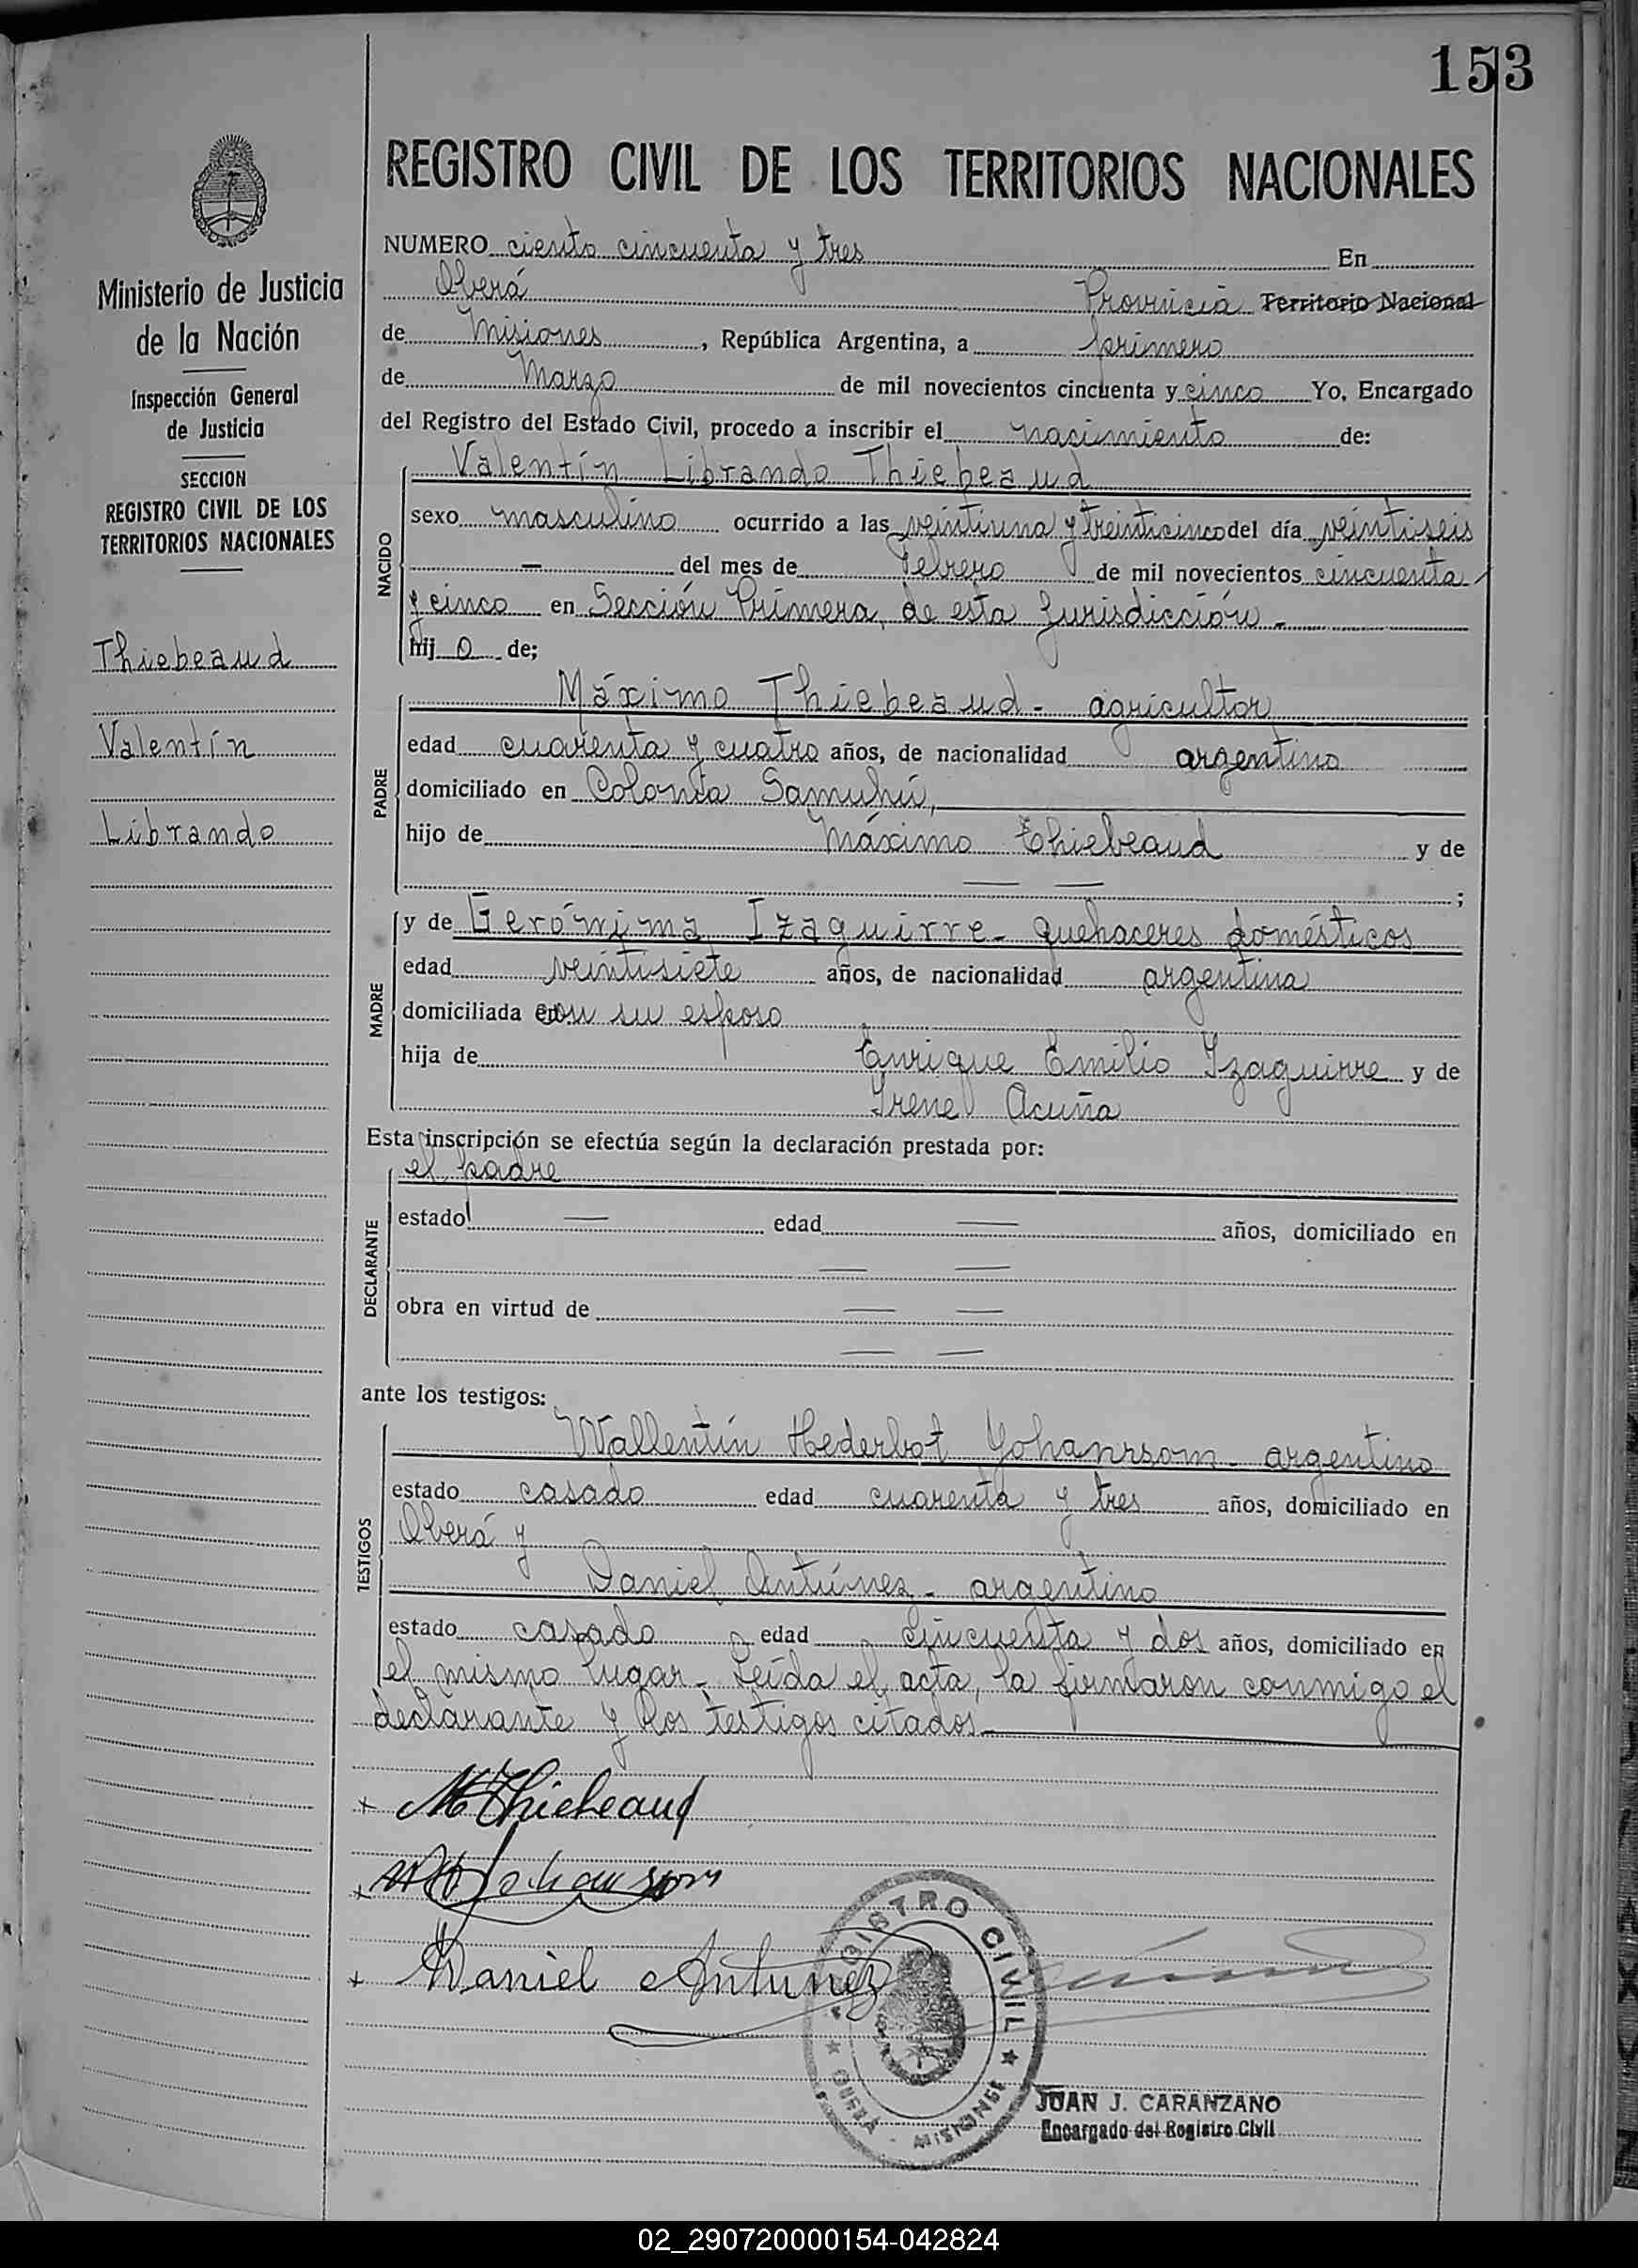 153
REGISTRO CIVIL DE LOS TERRITORIOS NACIONALES
Ministerio de Justicia
de la Nación
Inspección General
de Justicia
SECCION
REGISTRO CIVIL DE LOS
TERRITORIOS NACIONALES
Thiebeaud
Valentín
Librando
NUMERO ciento cincuenta y tres En
Oberá Provincia Territorio Nacional
de Misiones, República Argentina, a primero
de Marzo de mil novecientos cincuenta y cinco Yo, Encargado
del Registro del Estado Civil, procedo a inscribir el nacimiento de:
NACIDO
Valentín Librando Thiebeaud
sexo masculino ocurrido a las veintiuna y treinticinco del día veintiseis
— del mes de Febrero de mil novecientos cincuenta
y cinco en Sección Primera, de esta Jurisdicción -
hij o de;
PADRE
Máximo Thiebeaud - agricultor
edad cuarenta y cuatro años, de nacionalidad argentino
domiciliado en Colonia Samuhú,
hijo de Máximo Thiebeaud y de
— — ;
MADRE
y de Gerónima Izaguirre - quehaceres domésticos
edad veintisiete años, de nacionalidad argentina
domiciliada con su esposo
hija de Enrique Emilio Izaguirre y de
Irene Acuña
Esta inscripción se efectúa según la declaración prestada por:
DECLARANTE
el padre
estado — edad — años, domiciliado en
— —
obra en virtud de — —
— —
ante los testigos:
TESTIGOS
Wallentín Hederbot Yohanrsom - argentino
estado casado edad cuarenta y tres años, domiciliado en
Oberá y
Daniel Antúnez - argentino
estado casado edad cincuenta y dos años, domiciliado en
el mismo lugar - Leída el acta, la firmaron conmigo el
declarante y los testigos citados -
+ M Thiebeaud
+
+ Daniel Antunez
REGISTRO CIVIL ★ OBERÁ - MISIONES ★
JUAN J. CARANZANO
Encargado del Registro Civil
02_290720000154-042824